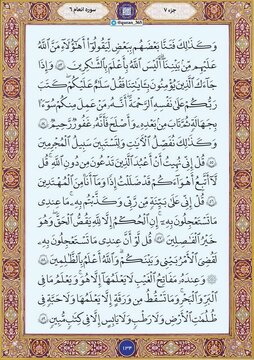 جزء ۷
@quran_365
سوره انعام ۶
وَكَذَٰلِكَ فَتَنَّا بَعْضَهُم بِبَعْضٍ لِّيَقُولُوا أَهَٰؤُلَاءِ مَنَّ اللَّهُ
عَلَيْهِم مِّن بَيْنِنَا أَلَيْسَ اللَّهُ بِأَعْلَمَ بِالشَّاكِرِينَ ۝ وَإِذَا
جَاءَكَ الَّذِينَ يُؤْمِنُونَ بِآيَاتِنَا فَقُلْ سَلَامٌ عَلَيْكُمْ كَتَبَ
رَبُّكُمْ عَلَىٰ نَفْسِهِ الرَّحْمَةَ أَنَّهُ مَنْ عَمِلَ مِنكُمْ سُوءًا
بِجَهَالَةٍ ثُمَّ تَابَ مِن بَعْدِهِ وَأَصْلَحَ فَأَنَّهُ غَفُورٌ رَّحِيمٌ ۝
وَكَذَٰلِكَ نُفَصِّلُ الْآيَاتِ وَلِتَسْتَبِينَ سَبِيلُ الْمُجْرِمِينَ
۝ قُلْ إِنِّي نُهِيتُ أَنْ أَعْبُدَ الَّذِينَ تَدْعُونَ مِن دُونِ اللَّهِ قُل
لَّا أَتَّبِعُ أَهْوَاءَكُمْ قَدْ ضَلَلْتُ إِذًا وَمَا أَنَا مِنَ الْمُهْتَدِينَ
۝ قُلْ إِنِّي عَلَىٰ بَيِّنَةٍ مِّن رَّبِّي وَكَذَّبْتُم بِهِ مَا عِندِي
مَا تَسْتَعْجِلُونَ بِهِ إِنِ الْحُكْمُ إِلَّا لِلَّهِ يَقُصُّ الْحَقَّ وَهُوَ
خَيْرُ الْفَاصِلِينَ ۝ قُل لَّوْ أَنَّ عِندِي مَا تَسْتَعْجِلُونَ بِهِ
لَقُضِيَ الْأَمْرُ بَيْنِي وَبَيْنَكُمْ وَاللَّهُ أَعْلَمُ بِالظَّالِمِينَ ۝
۞ وَعِندَهُ مَفَاتِحُ الْغَيْبِ لَا يَعْلَمُهَا إِلَّا هُوَ وَيَعْلَمُ مَا فِي
الْبَرِّ وَالْبَحْرِ وَمَا تَسْقُطُ مِن وَرَقَةٍ إِلَّا يَعْلَمُهَا وَلَا حَبَّةٍ فِي
ظُلُمَاتِ الْأَرْضِ وَلَا رَطْبٍ وَلَا يَابِسٍ إِلَّا فِي كِتَابٍ مُّبِينٍ ۝
۱۳۴